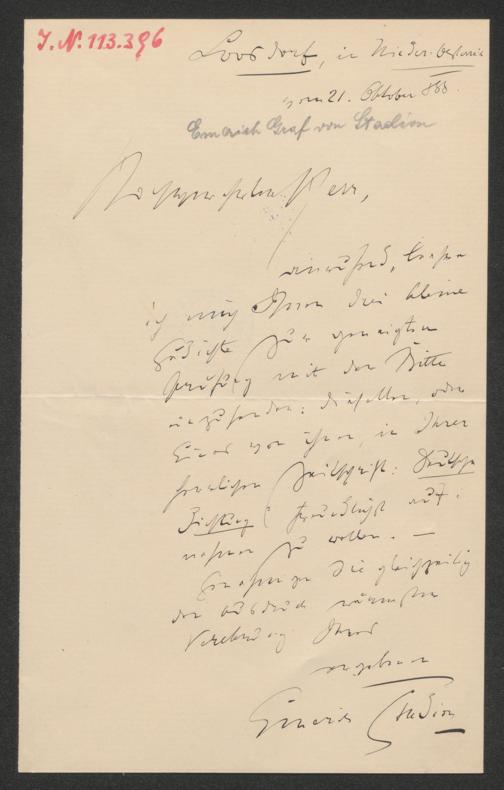 J. N. 113.396
Loosdorf, in Nieder-Oesterreich
vom 21. Oktober 888.
Emerich Graf von Stadion
Hochgeehrter Herr,
erlaube
ich mich Ihnen drei kleine
Gedichte zur geneigten
Prüfung mit der Bitte
einzusenden: dieselben, oder
Eines von ihnen, in Ihrer
Zeitschrift: Deutsche
Dichtung auf-
nehmen zu wollen. —
Empfangen Sie gleichzeitig
den Ausdruck wärmster
Verehrung Ihres
ergebenen
Emerich Stadion